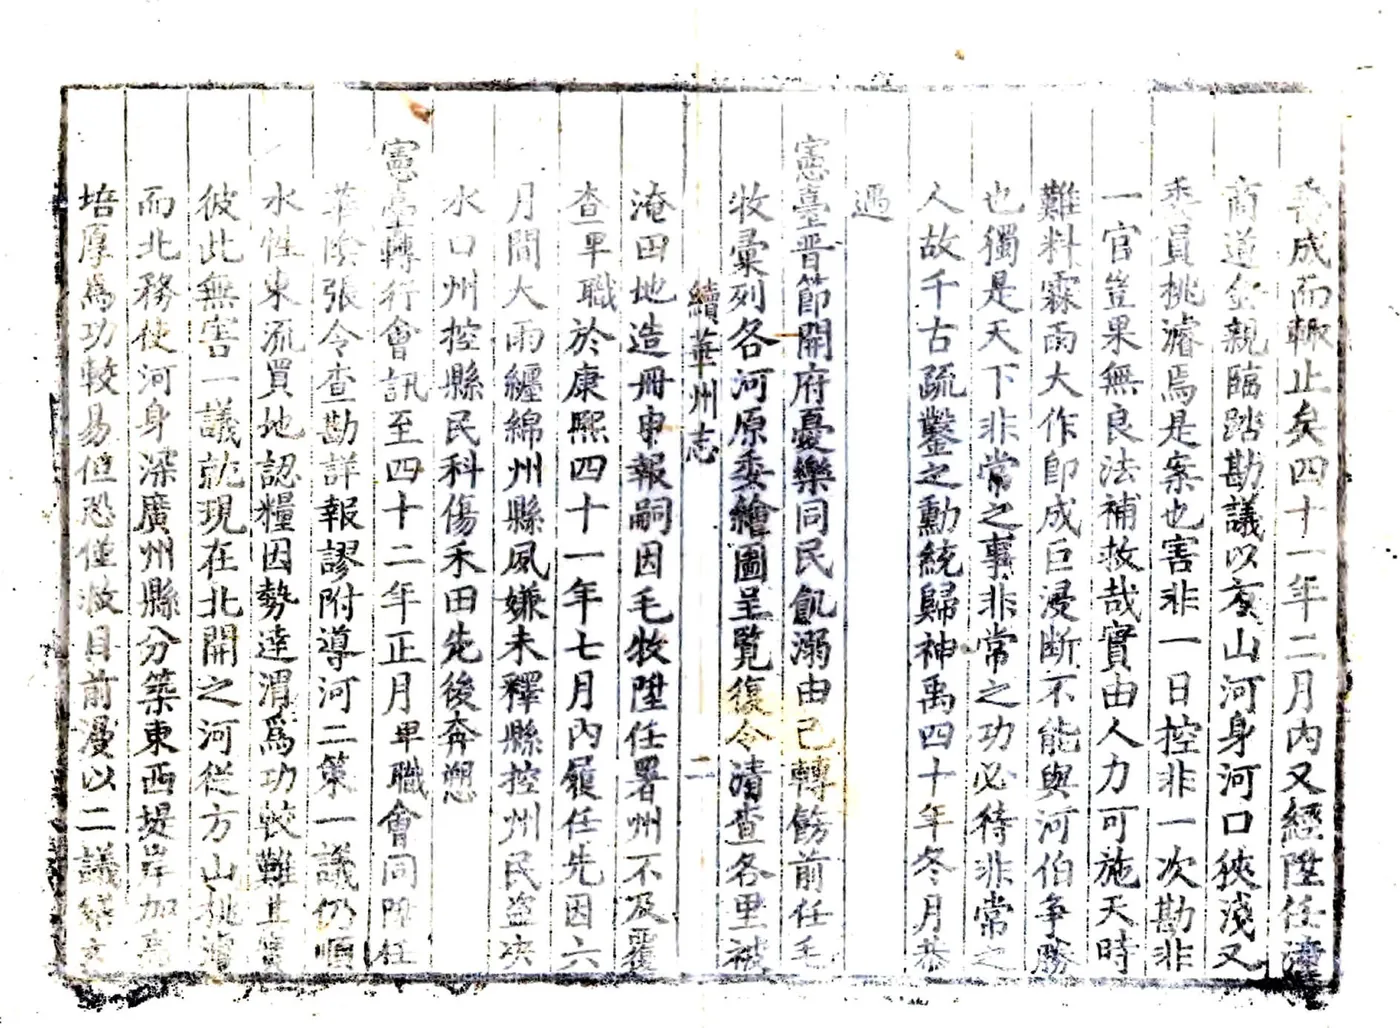 成而輙止矣四十一年二月內又經陞任潼
商道金親臨踏勘議以方山河身河口狹淺又
委員挑濬焉是案也害非一日控非一次勘非
一官豈果無良法補救哉實由人力可施天時
難料霖雨大作卽成巨浸斷不能與河伯争勝
也獨是天下非常之事非常之功必待非常之
人故千古疏鑿之勳統歸神禹四十年冬月恭
遇
憲臺晋節開府憂樂同民飢溺由己轉飭前任毛
牧彙列各河原委繪圖呈覧復令清查各里被
續華州志
二
淹田地造冊申報嗣因毛牧陞任署州不及覆
查卑職於康熙四十一年七月內履任先因六
月間大雨纏綿州縣夙嫌未釋縣控州民盗決
水口州控縣民科傷禾田先後奔愬
憲臺轉行會訊至四十二年正月卑職會同陞任
華陰張令查勘詳報謬附導河二策一議仍順
水性東流買地認糧因勢達渭爲功較難其實
彼此無害一議就現在北開之河従方山挑濬
而北務使河身深廣州縣分築東西堤岸加高
培厚爲功較易但恐僅救目前漫以二議繕